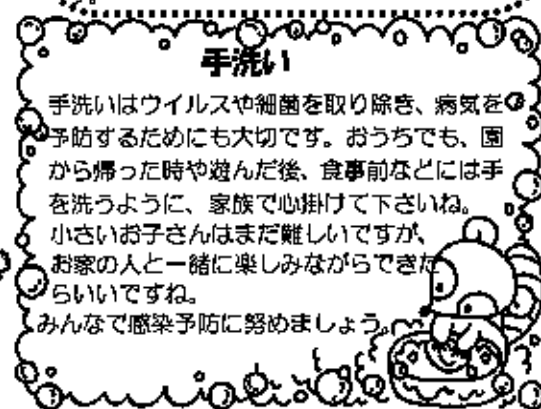 手洗い
手洗いはウイルスや細菌を取り除き、病気を
予防するためにも大切です。おうちでも、園
から帰った時や遊んだ後、食事前などには手
を洗うように、家族で心掛けて下さいね。
小さいお子さんはまだ難しいですが、
お家の人と一緒に楽しみながらできた
らいいですね。
みんなで感染予防に努めましょう。